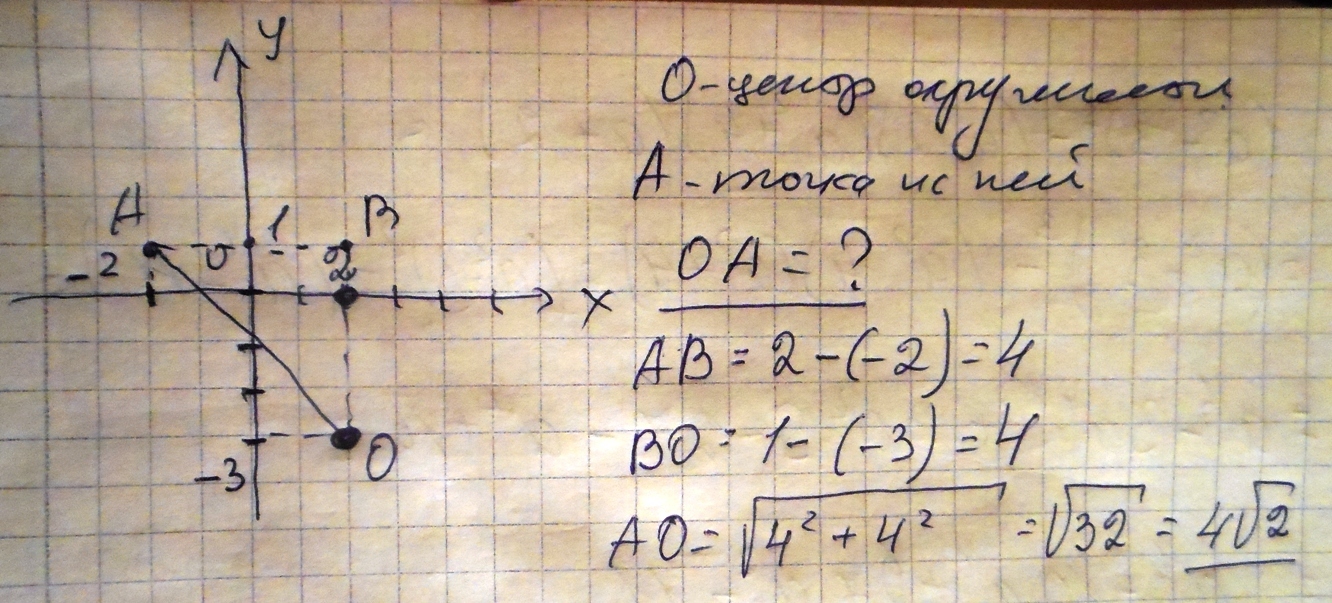 y
A
1
B
-2
0
2
x
-3
O
O-центр окружности
A-точка на ней
OA = ?
AB = 2 - (-2) = 4
BO = 1 - (-3) = 4
AO = √4² + 4² = √32 = 4√2